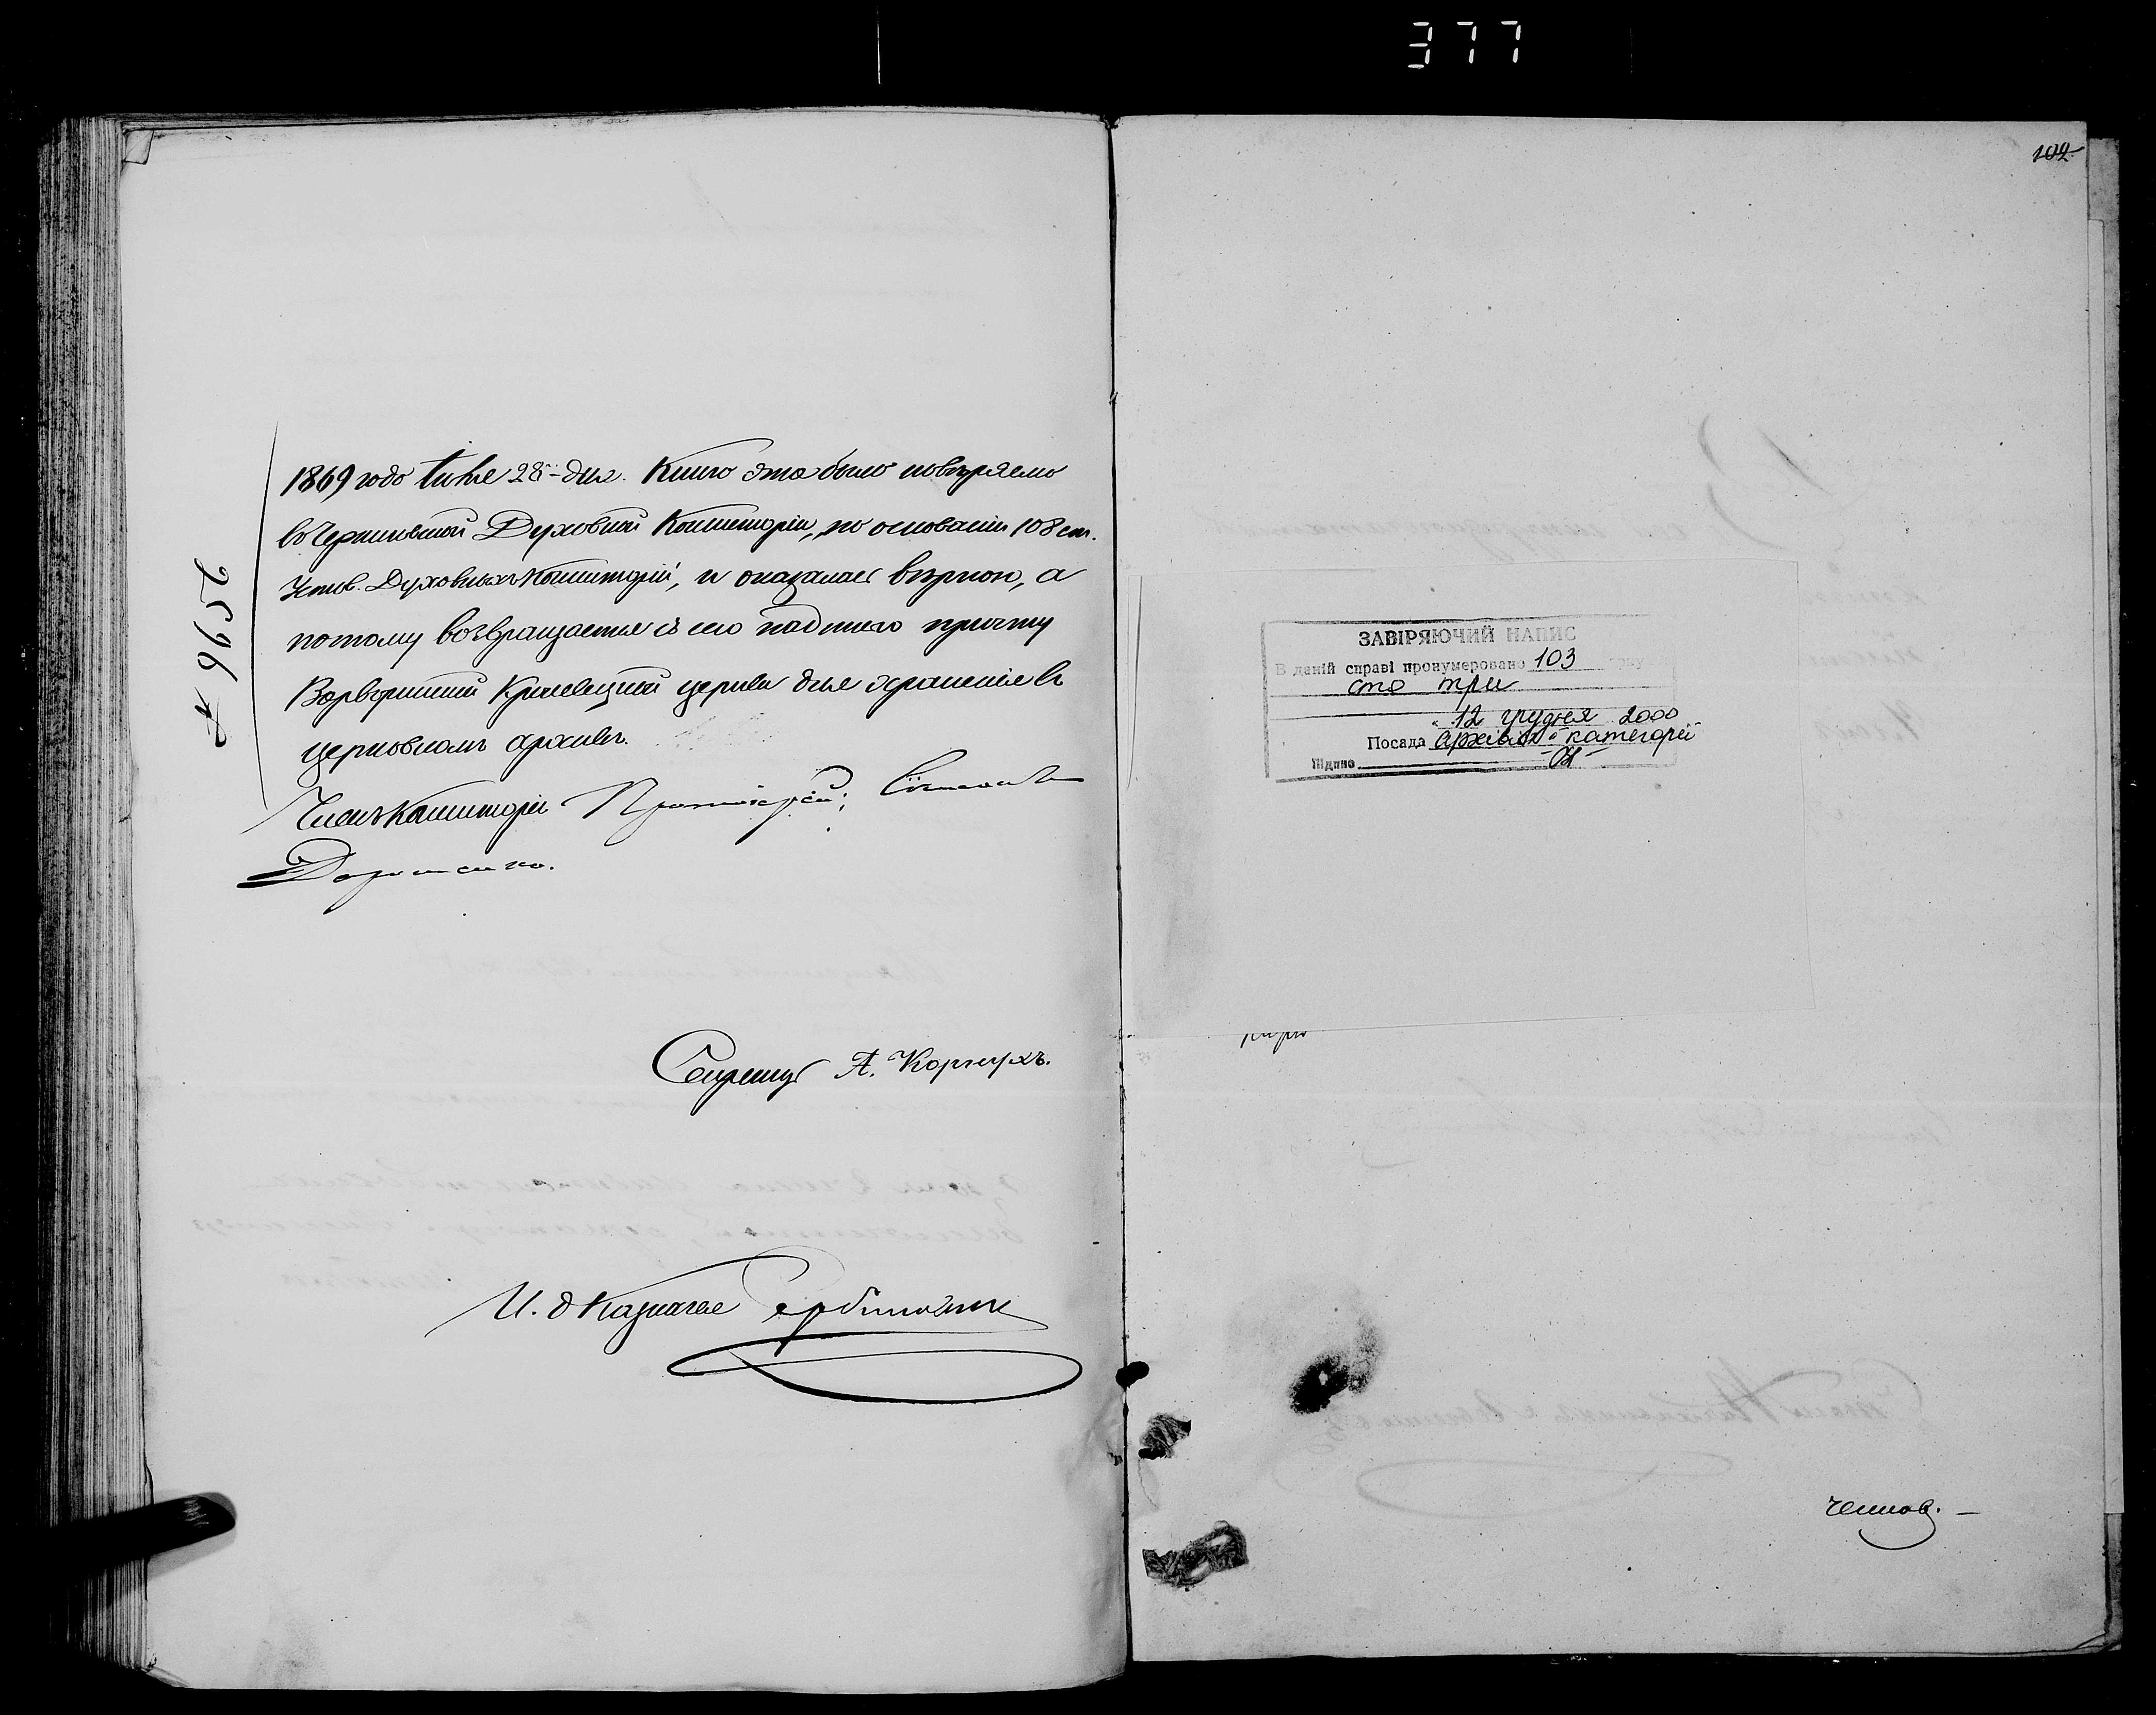 377
102
1869 года Іюля 28-дня. Книга эта была повѣряема
въ Черниговской Духовной Консисторіи, на основаніи 108 ст.
Устав. Духовныхъ Консисторій, и оказалась вѣрною, а
потому возвращается съ сею надписью причту
Варваринской церкви для храненія въ
церковномъ архивѣ.
Членъ Консисторіи Протоіерей
Дорошенко.
Секретарь А. Корнухъ.
И. д Казначея
2596
ЗАВІРЯЮЧИЙ НАПИС
В даній справі пронумеровано 103
сто три
"12 грудня 2000
Посада архівіст категорії
Підпис